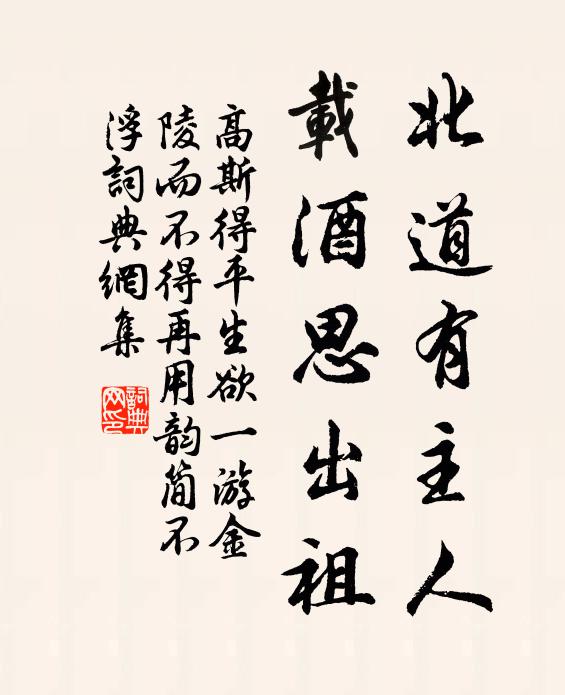 北道有主人
載酒思出祖
高斯得平生欲一游金
陵而不得再用韵簡不
浮詞典網集
詞典
网印